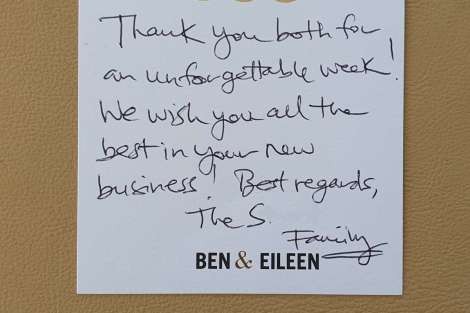 Thank you both for
an unforgettable week!
We wish you all the
best in your new
business! Best regards,
The S.
Family
BEN & EILEEN